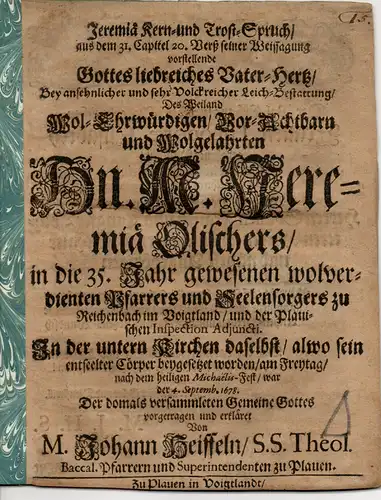 15.
Jeremiä Kern-und Trost-Spruch/
aus dem 31. Capitel 20. Verß seiner Weissagung
vorstellende
Gottes liebreiches Vater-Hertz/
Bey ansehnlicher und sehr Volckreicher Leich-Bestattung/
Des Weiland
Wol-Ehrwürdigen/ Vor-Achtbarn
und Wolgelahrten
Hn. M. Jere-
miä Olischers/
in die 35. Jahr gewesenen wolver-
dienten Pfarrers und Seelensorgers zu
Reichenbach im Voigtland/ und der Plaui-
schen Inspection Adjuncti.
In der untern Kirchen daselbst/ alwo sein
entseelter Cörper beygesetzet worden/ am Freytag/
nach dem heiligen Michaëlis-Fest/ war
der 4. Septemb. 1678.
Der domals versammleten Gemeine Gottes
vorgetragen und erkläret
Von
M. Johann Heiffeln/ S.S. Theol.
Baccal. Pfarrern und Superintendenten zu Plauen.
Zu Plauen in Voigtlandt/